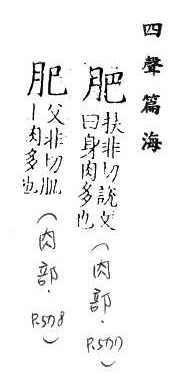 四聲篇海
肥 扶非切說文
曰身肉多也
(肉部.P.577)
肥 父非切肌
丨肉多也
(肉部.P.578)